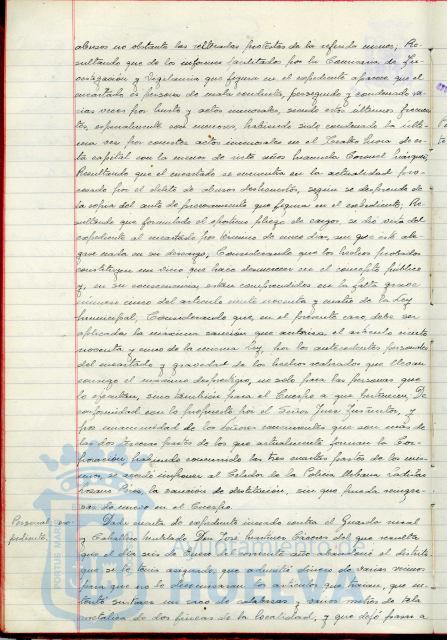 abusos no obstante las reiteradas protestas de la referida menor; Re-
sultando que de los informes facilitados por la Comisaria de In-
vestigación y Vigilancia que figura en el expediente aparece que el
encartado es persona de mala conducta, perseguido y condenado va-
rias veces por hurto y actos inmorales, siendo estos últimos frecuen-
tes, especialmente con menores, habiendo sido condenado la últi-
ma vez por cometer actos inmorales en el Teatro Mora de es-
ta capital con la menor de siete años Manuela Coronel
Resultando que el encartado se encuentra en la actualidad pro-
cesado por el delito de abusos deshonestos, según se desprende de
la copia del auto de procesamiento que figura en el expediente; Re-
sultando que formulado el oportuno pliego de cargos, se dió vista del
expediente al encartado por término de cinco días, sin que éste ale-
gue nada en su descargo, Considerando que los hechos probados
constituyen un vicio que hace desmerecer en el concepto público
y, en su consecuencia están comprendidos en la falta grave
número cinco del artículo ciento noventa y cuatro de la Ley
Municipal, Considerando que, en el presente caso debe ser
aplicada la máxima sanción que autoriza el artículo ciento
noventa y cinco de la misma Ley, por los antecedentes personales
del encartado y gravedad de los hechos realizados que llevan
consigo el máximo desprestigio, no solo para las personas que
lo ejecutan, sino también para el Cuerpo a que pertenecen, De
conformidad con lo propuesto por el Señor Juez Instructor, y
por unanimidad de los señores concurrentes que son más de
las dos terceras partes de los que actualmente forman la Cor-
poración, habiendo concurrido las tres cuartas partes de los mis-
mos, se acordó imponer al Celador de la Policía Urbana Ladislao
Rosano la sanción de destitución, sin que pueda reingre-
sar de nuevo en el Cuerpo
Personal ex-
pediente.
Dada cuenta de expediente incoado contra el Guarda rural
y Caballero Mutilado Don José Martínez Cáceres del que resulta
que el día seis de Enero del corriente año abandonó el distrito
que se le tenía asignado, que admitió dinero de varios vecinos
para que no le decomisaran los artículos que traían, que in-
tentó sustraer un saco de calabazas y varios metros de tela
metálica de dos fincas de la localidad, y que dejó pasar a
PORTUS MARIS
Ayuntamiento de
HUELVA